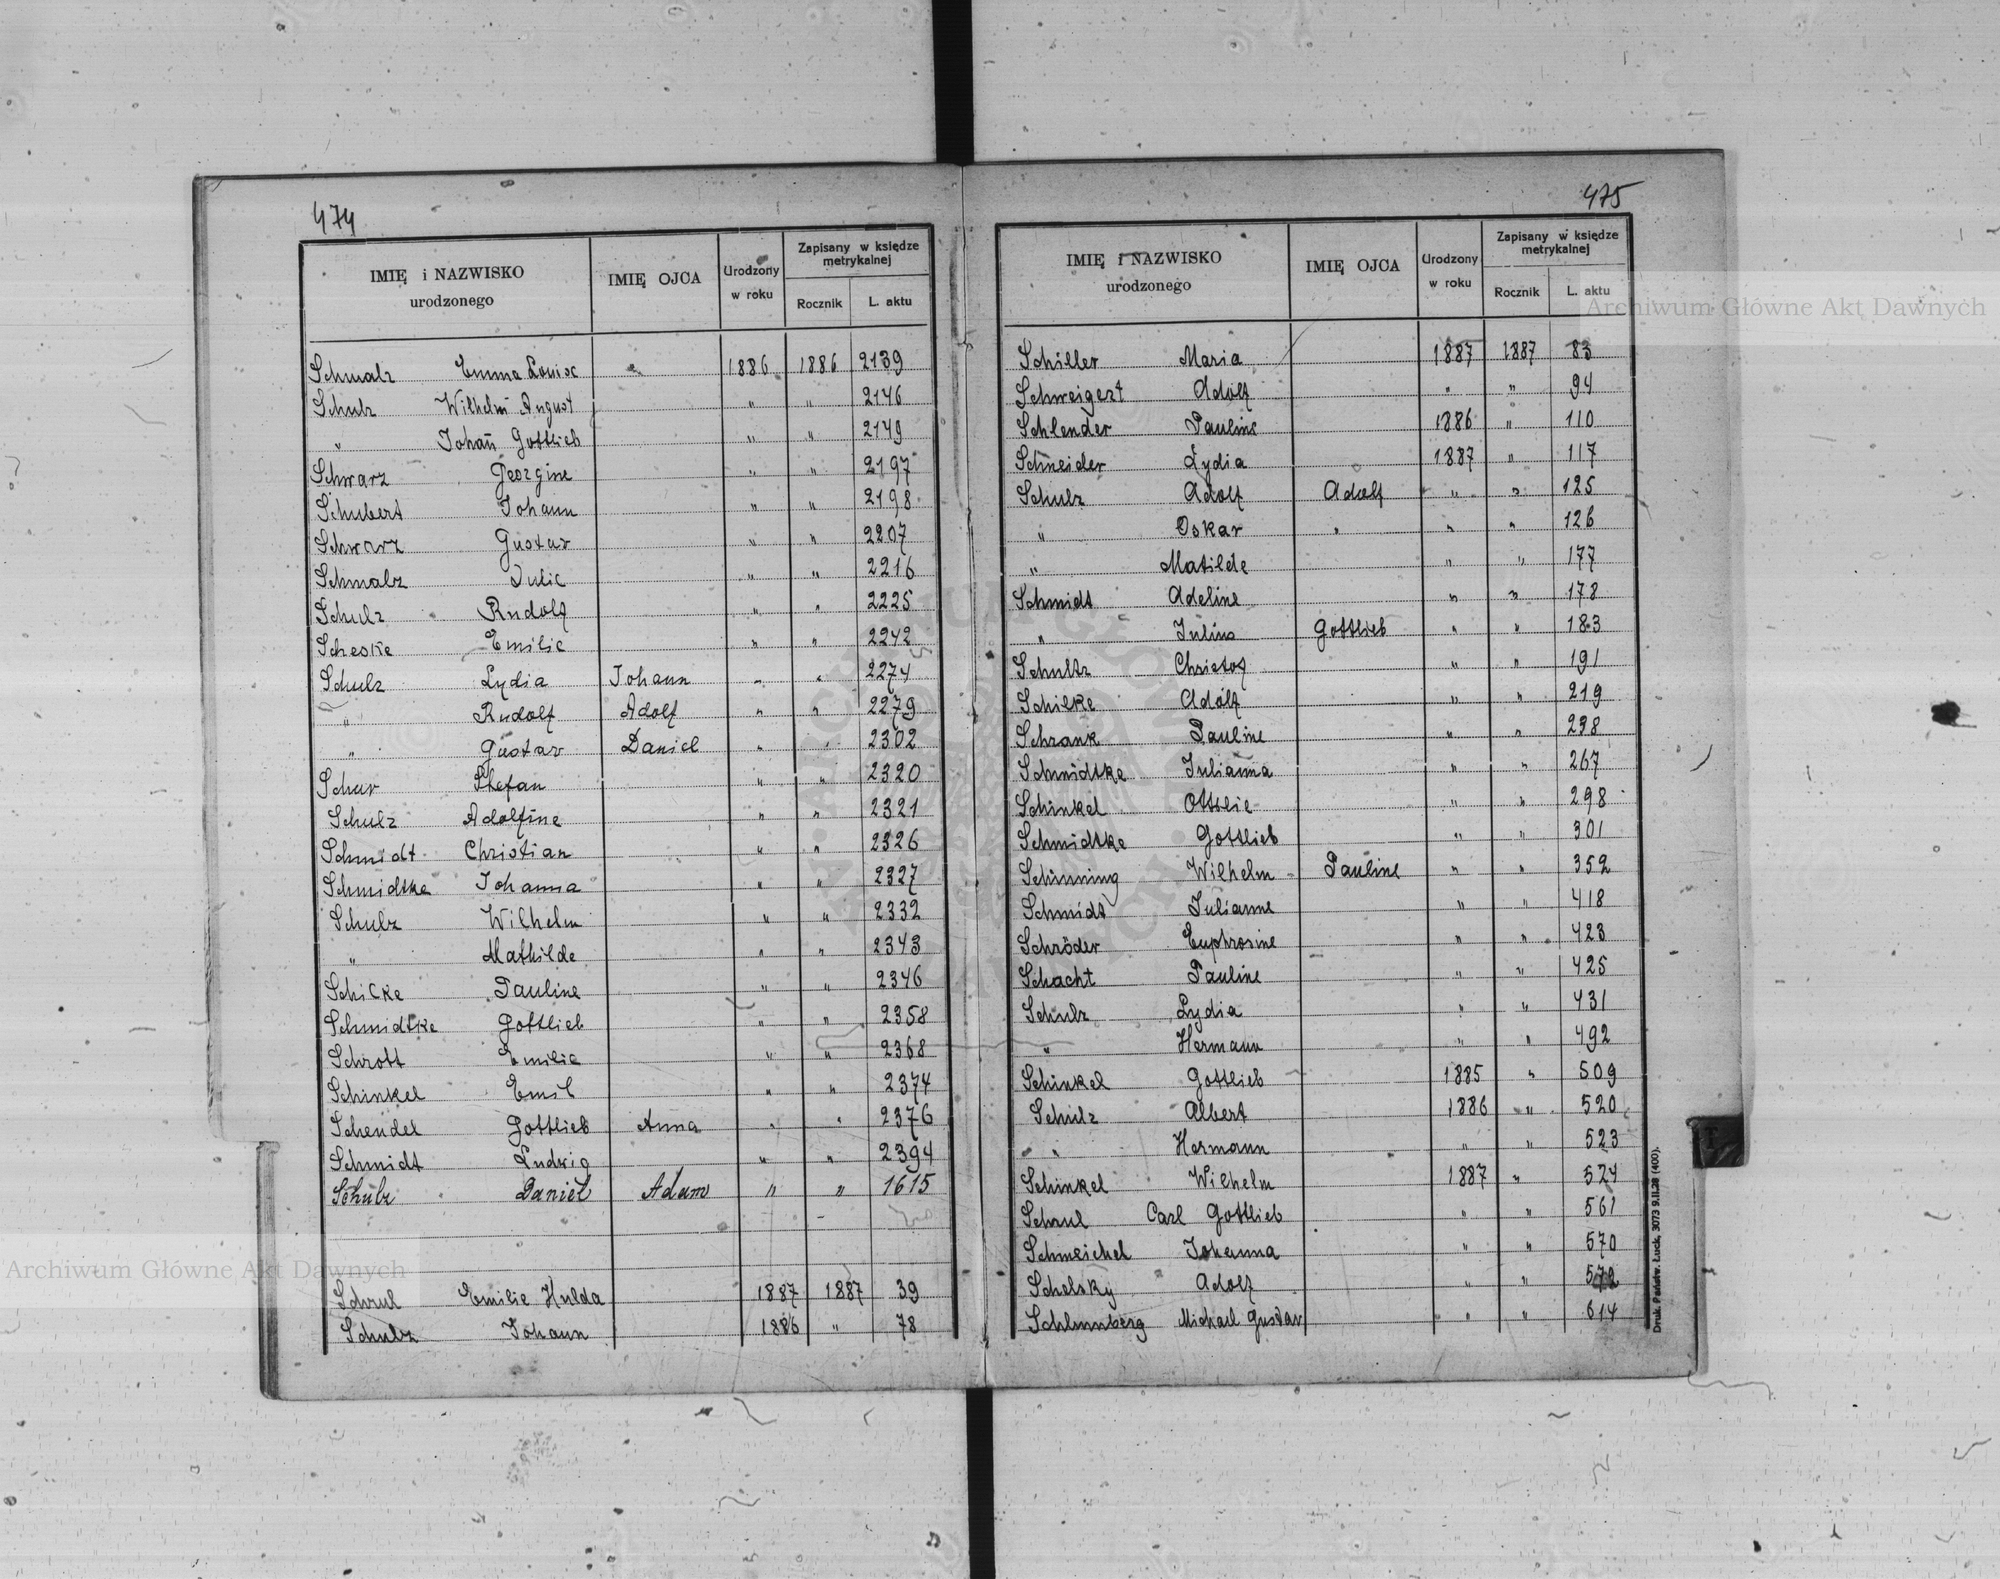 474
IMIĘ i NAZWISKO urodzonego IMIĘ OJCA Urodzony w roku Zapisany w księdze metrykalnej Rocznik L. aktu
Schmalz Emma Louise 1886 1886 2139
Schulz Wilhelm August " " 2146
" Johañ Gottlieb " " 2149
Schwarz Georgine " " 2197
Schubert Johann " " 2198
Schwarz Gustav " " 2207
Schmalz Julie " " 2216
Schulz Rudolf " " 2225
Scheske Emilie " " 2242
Schulz Lydia Johann " " 2274
" Rudolf Adolf " " 2279
" Gustav Daniel " " 2302
Schur Stefan " " 2320
Schulz Adolfine " " 2321
Schmidt Christian " " 2326
Schmidtke Johanna " " 2327
Schulz Wilhelm " " 2332
" Mathilde " " 2343
Schicke Pauline " " 2346
Schmidtke Gottlieb " " 2358
Schrott Emilie " " 2368
Schinkel Emil " " 2374
Schendel Gottlieb Anna " " 2376
Schmidt Ludwig " " 2394
Schulz Daniel Adam " " 1615
Schrul Emilie Hulda 1887 1887 39
Schulz Johann 1886 " 78
475
IMIĘ i NAZWISKO urodzonego IMIĘ OJCA Urodzony w roku Zapisany w księdze metrykalnej Rocznik L. aktu
Schiller Maria 1887 1887 83
Schweigert Adolf " " 94
Schlender Pauline 1886 " 110
Schneider Lydia 1887 " 117
Schulz Adolf Adolf " " 125
" Oskar " " " 126
" Matilde " " 177
Schmidt Adeline " " 178
" Julius Gottlieb " " 183
Schultz Christof " " 191
Schilke Adolf " " 219
Schrank Pauline " " 238
Schmidtke Julianna " " 267
Schinkel Ottilie " " 298
Schmidtke Gottlieb " " 301
Schinning Wilhelm Pauline " " 352
Schmidt Julianne " " 418
Schröder Euphrosine " " 423
Schacht Pauline " " 425
Schulz Lydia " " 431
" Hermann " " 492
Schinkel Gottlieb 1885 " 509
Schulz Albert 1886 " 520
" Hermann " " 523
Schinkel Wilhelm 1887 " 524
Schrul Carl Gottlieb " " 561
Schmeichel Johanna " " 570
Schelsky Adolf " " 572
Schlumberg Michael Gustav " " 614
Druk. Państw. Łuck, 3073 9.II.28 (400).
Archiwum Główne Akt Dawnych
Archiwum Główne Akt Dawnych